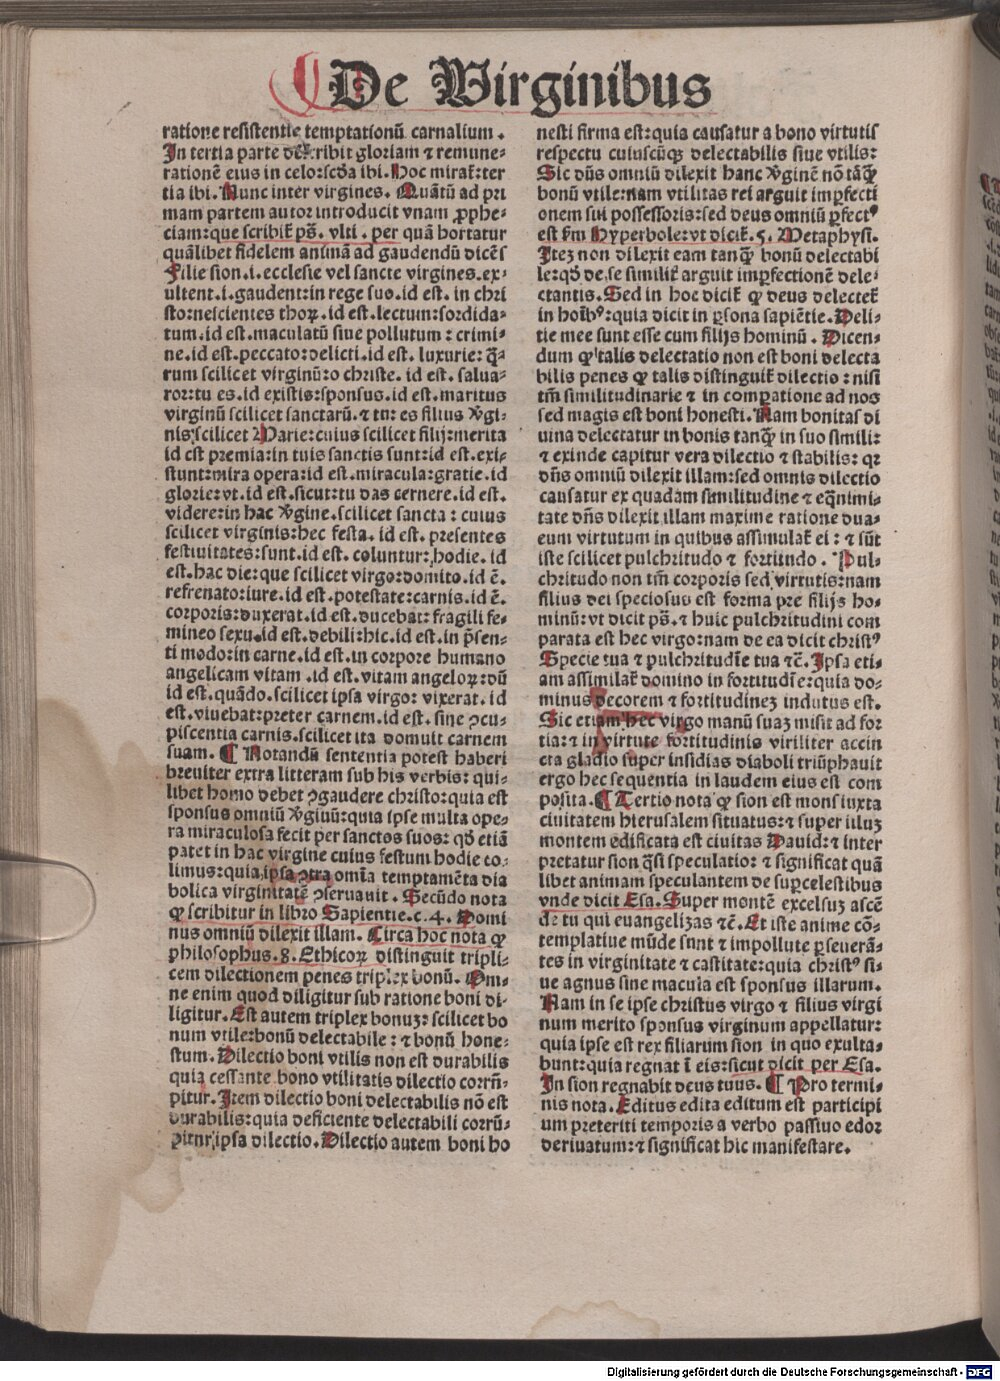 De Virginibus
ratione resistentie temptationū carnalium.
In tertia parte describit gloriam ⁊ remune⸗
rationē eius in celo:scḋa ibi. Hoc mirat̄:ter
tia ibi. Nunc inter virgines. Quātū ad pri
mam partem autor introducit vnam ꝓphe⸗
ciam:que scribit̄ ps̄. vlti. per quā hortatur
quālibet fidelem animā ad gaudendū dicēs
Filie sion.i.ecclesie vel sancte virgines.ex⸗
ultent.i.gaudent:in rege suo.id est. in chri
sto:nescientes thoꝝ.id est.lectum:sordida⸗
tum.id est.maculatū siue pollutum: crimi⸗
ne.id est.peccato:delicti.id est. luxurie: q̄⸗
rum scilicet virginū:o christe. id est. salua⸗
ror:tu es.id existis:sponsus.id est.maritus
virginū scilicet sanctarū.⁊ tu: es filius v̄gi⸗
nis:scilicet Marie:cuius scilicet filij:merita
id est premia:in tuis sanctis sunt:id est.exi⸗
stunt:mira opera:id est.miracula:gratie.id
glorie:vt.id est.sicut:tu das cernere.id est.
videre:in hac v̄gine.scilicet sancta: cuius
scilicet virginis:hec festa. id est. presentes
festiuitates:sunt.id est. coluntur:hodie. id
est.hac die:que scilicet virgo:domito.id ē.
refrenato:iure.id est.potestate:carnis.id ē.
corporis:duxerat.id est.ducebat:fragili fe⸗
mineo sexu.id est.debili:hic.id est.in p̄sen⸗
ti modo:in carne.id est.in corpore humano
angelicam vitam .id est.vitam angeloꝝ:dū
id est.quādo.scilicet ipsa virgo: vixerat. id
est.viuebat:preter carnem.id est. sine ꝯcu⸗
piscentia carnis.scilicet ita domuit carnem
suam. ¶ Notandū sententia potest haberi
breuiter extra litteram sub his verbis: qui⸗
libet homo debet ꝯgaudere christo:quia est
sponsus omniū v̄ginū:quia ipse multa ope⸗
ra miraculosa fecit per sanctos suos: qḋ etiā
patet in hac virgine cuius festum hodie co⸗
limus:quia ipsa ꝯtra om̄ia temptamēta dia
bolica virginitatē ꝯseruauit . Secūdo nota
ꝙ scribitur in libro Sapientie.c.4. Domi
nus omniū dilexit illam. Circa hoc nota ꝙ
philosophus.8.Ethicoꝝ distinguit tripli⸗
cem dilectionem penes triplex bonū. Om⸗
ne enim quod diligitur sub ratione boni di⸗
ligitur. Est autem triplex bonuꝫ: scilicet bo
num vtile:bonū delectabile: ⁊ bonū hone⸗
stum. Dilectio boni vtilis non est durabilis
quia cessante bono vtilitatis dilectio corrū⸗
pitur. Item dilectio boni delectabilis nō est
durabilis:quia deficiente delectabili corrū⸗
pitur ipsa dilectio. Dilectio autem boni ho
nesti firma est:quia causatur a bono virtutis
respectu cuiuscūqꝫ delectabilis siue vtilis:
Sic dn̄s omniū dilexit hanc v̄ginē nō tāq̄
bonū vtile:nam vtilitas rei arguit imꝑfecti
onem sui possessoris:sed deus omniū ꝑfectꝰ
est ſm Hyperbole:vt dicit̄. 5. Metaphysi.
Iteꝫ non dilexit eam tanq̄ bonū delectabi
le:qḋ de.se similit̄ arguit imꝑfectionē dele⸗
ctantis. Sed in hoc dicit̄ ꝙ deus delectet̄
in hoībꝰ:quia dicit in ꝑsona sapiētie. Deli⸗
tie mee sunt esse cum filijs hominū . Dicen⸗
dum ꝙ talis delectatio non est boni delecta
bilis penes ꝙ talis distinguit̄ dilectio: nisi
tm̄ similitudinarie ⁊ in comꝑatione ad nos
sed magis est boni honesti. Nam bonitas di
uina delectatur in bonis tanq̄ in suo simili:
⁊ exinde capitur vera dilectio ⁊ stabilis: qꝛ
dn̄s omniū dilexit illam:sed omnis dilectio
causatur ex quadam similitudine ⁊ eq̄nimi⸗
tate dn̄s dilexit illam maxime ratione dua⸗
rum virtutum in quibus assimulat̄ ei: ⁊ sūt
iste scilicet pulchritudo ⁊ fortitudo . Pul⸗
chritudo non tm̄ corporis sed virtutis:nam
filius dei speciosus est forma pre filijs ho⸗
minū: vt dicit ps̄. ⁊ huic pulchritudini com
parata est hec virgo:nam de ea dicit christꝰ
Specie tua ⁊ pulchritudīe tua ⁊c̄. Ipsa eti⸗
am assimilat̄ domino in fortitudīe:quia do⸗
minus decorem ⁊ fortitudineꝫ indutus est.
Sic etiam hec virgo manū suaꝫ misit ad for
tia:⁊ in virtute fortitudinis viriliter accin
cta gladio super insidias diaboli triūphauit
ergo hec sequentia in laudem eius est com
posita. ¶ Tertio nota ꝙ sion est mons iuxta
ciuitatem hierusalem situatus:⁊ super illuꝫ
montem edificata est ciuitas Dauid:⁊ inter
pretatur sion q̄si speculatio: ⁊ significat quā
libet animam speculantem de suꝑcelestibus
vnde dicit Esa. Super montē excelsuꝫ ascē
de tu qui euangelizas ⁊c̄. Et iste anime cō⸗
templatiue mūde sunt ⁊ impollute ꝑseuerā⸗
tes in virginitate ⁊ castitate:quia christꝰ si⸗
ue agnus sine macula est sponsus illarum.
Nam in se ipse christus virgo ⁊ filius virgi
num merito sponsus virginum appellatur:
quia ipse est rex filiarum sion in quo exulta⸗
bunt:quia regnat ī eis:sicut dicit per Esa.
In sion regnabit deus tuus. ¶ Pro termi⸗
nis nota. Editus edita editum est participi
um preteriti temporis a verbo passiuo edor
deriuatum:⁊ significat hic manifestare.
Digitalisierung gefördert durch die Deutsche Forschungsgemeinschaft - DFG